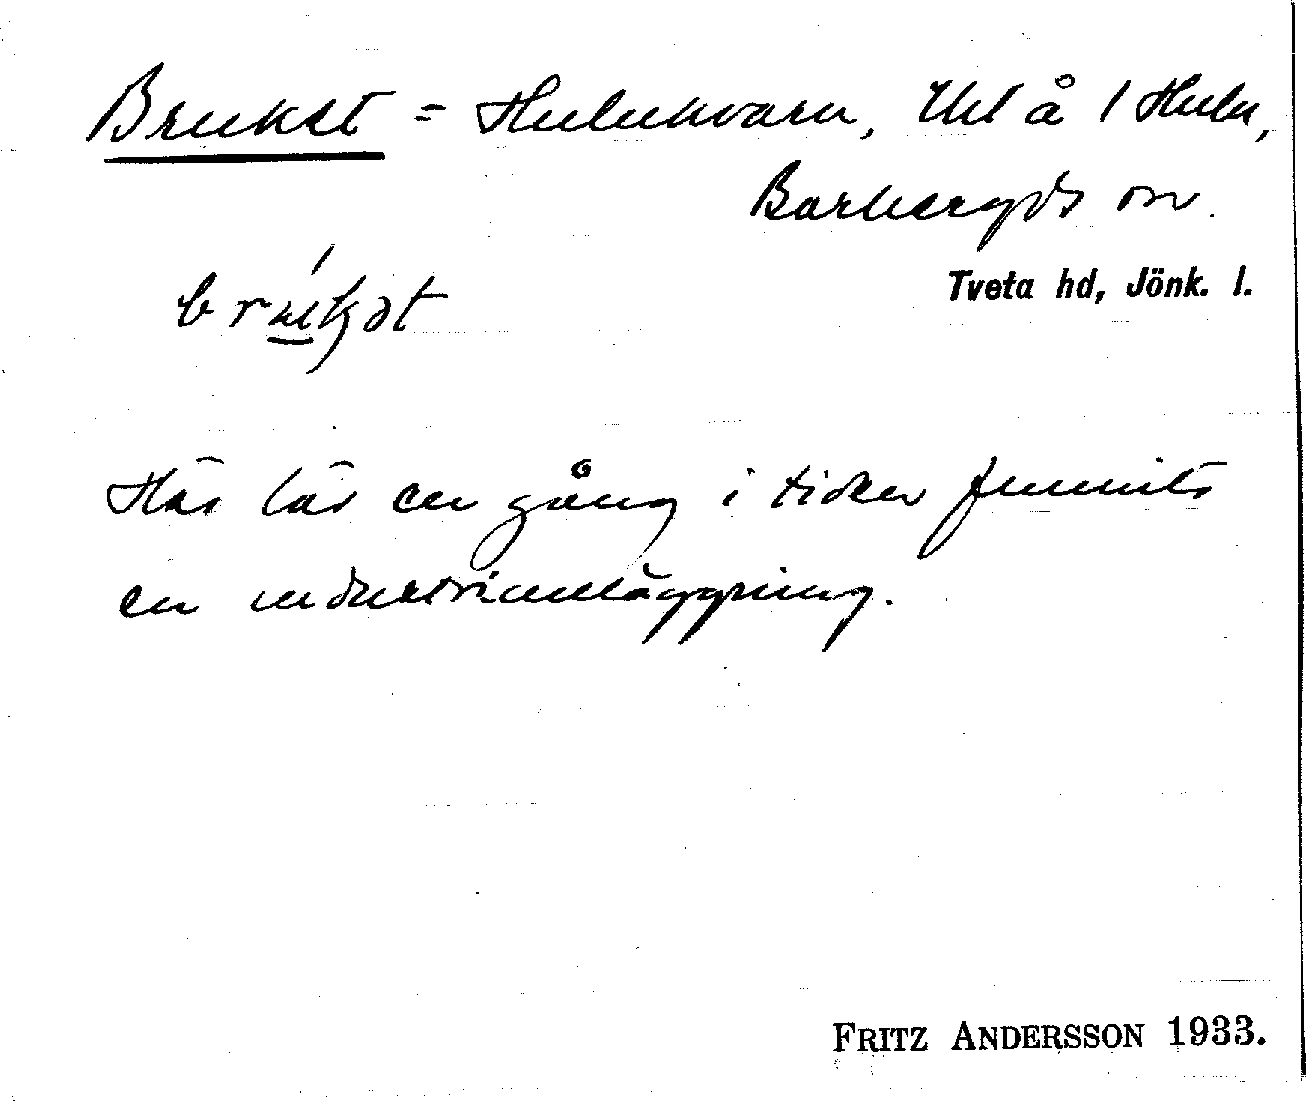 Bruket = Hulukvarn, Uh å 1 Hulu,
Barkeryds sn.
Tveta hd, Jönk. l.
Här lär en gång i tiden funnits
en industrianläggning.
FRITZ ANDERSSON 1933.